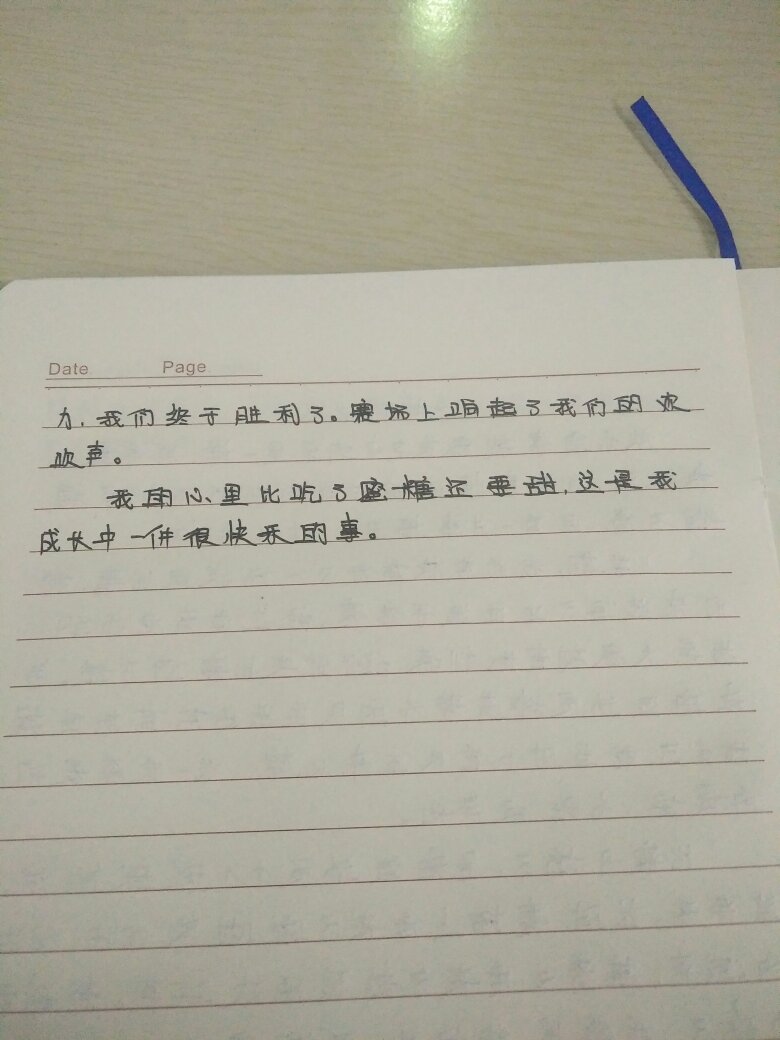 Date Page
力,我们终于胜利了。赛场上响起了我们的欢
吹声。
我的心里比吃了蜜糖还要甜,这是我
成长中一件很快乐的事。